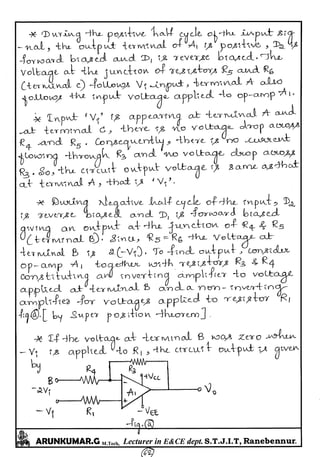 * During the positive half cycle of the input sig
-nal, the output terminal of A1 is positive, D2 is
forward biased and D1 is reverse biased. The
voltage at the junction of resistors R5 and R6
(terminal c) follows Vi input, terminal A also
follows the input voltage applied to op-amp A1.
* Input 'Vi' is appearing at terminal A and
at terminal C, there is no voltage drop across
R4 and R5. Consequently, there is no current
flowing through R3 and no voltage drop across
R3. So, the circuit output voltage is same as that
at terminal A, that is 'Vi'.
* During Negative half cycle of the input, D2
is reverse biased and D1 is forward biased
giving an output at the junction of R4 & R5
(terminal B). Since, R5 = R6 the voltage at
terminal B is 2(-Vi). To find output, consider
op-amp A1 together with resistors R3 & R4
constituting an inverting amplifier to voltage
applied at terminal B and a non-inverting
amplifier for voltages applied to resistor R1
fig(a). [by Super position theorem].
* If the voltage at terminal B was zero when
- Vi is applied to R1, the circuit output is given
by
R4 R3
+VCC
B
-2Vi
A1
Vo
- Vi R1
-VEE
fig.(a)
ARUNKUMAR.G M.Tech, Lecturer in E&CE dept. S.T.J.I.T, Ranebennur.